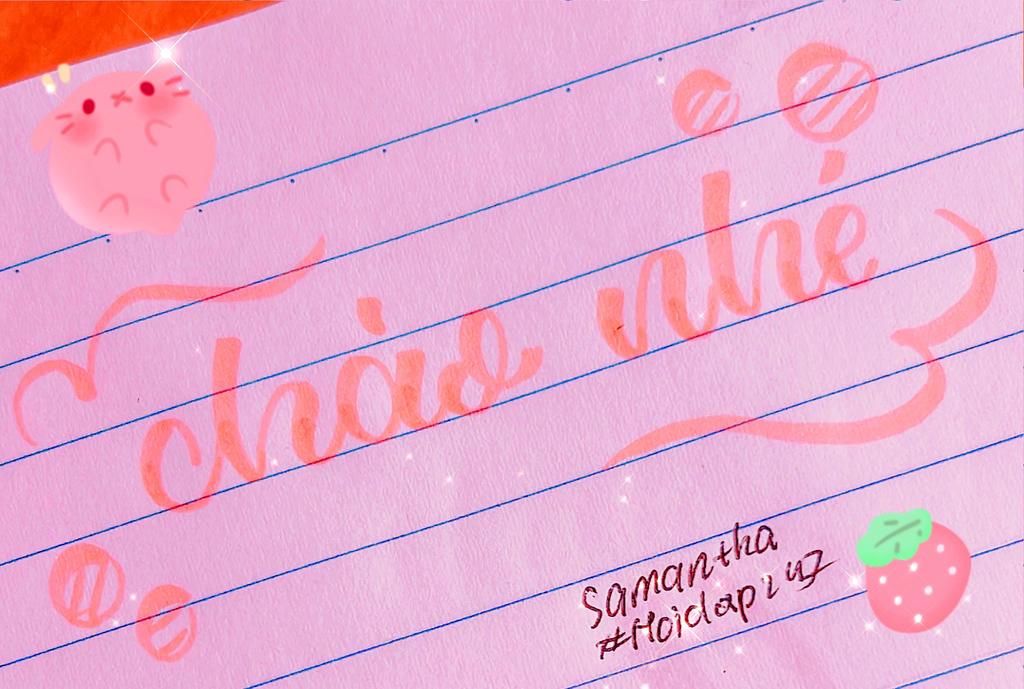 chào nhé
Samantha
#Hoidap247